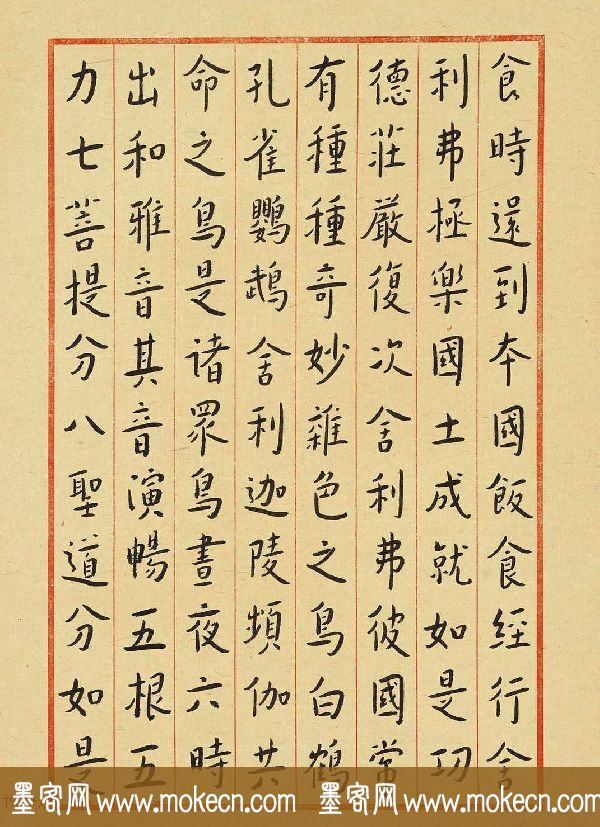 食時還到本國飯食經行舍
利弗極樂國土成就如是功
德莊嚴復次舍利弗彼國常
有種種奇妙雜色之鳥白鶴
孔雀鸚鵡舍利迦陵頻伽共
命之鳥是諸眾鳥晝夜六時
出和雅音其音演暢五根五
力七菩提分八聖道分如是
墨客网 www.mokecn.com 墨客网 www.mokecn.com